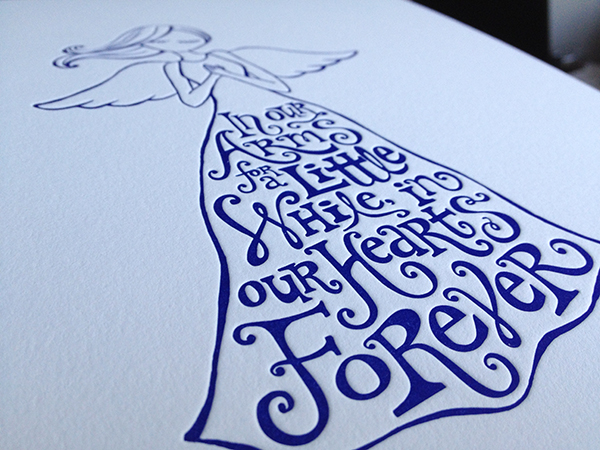 In our
Arms
for a Little
While, in
our Hearts
Forever